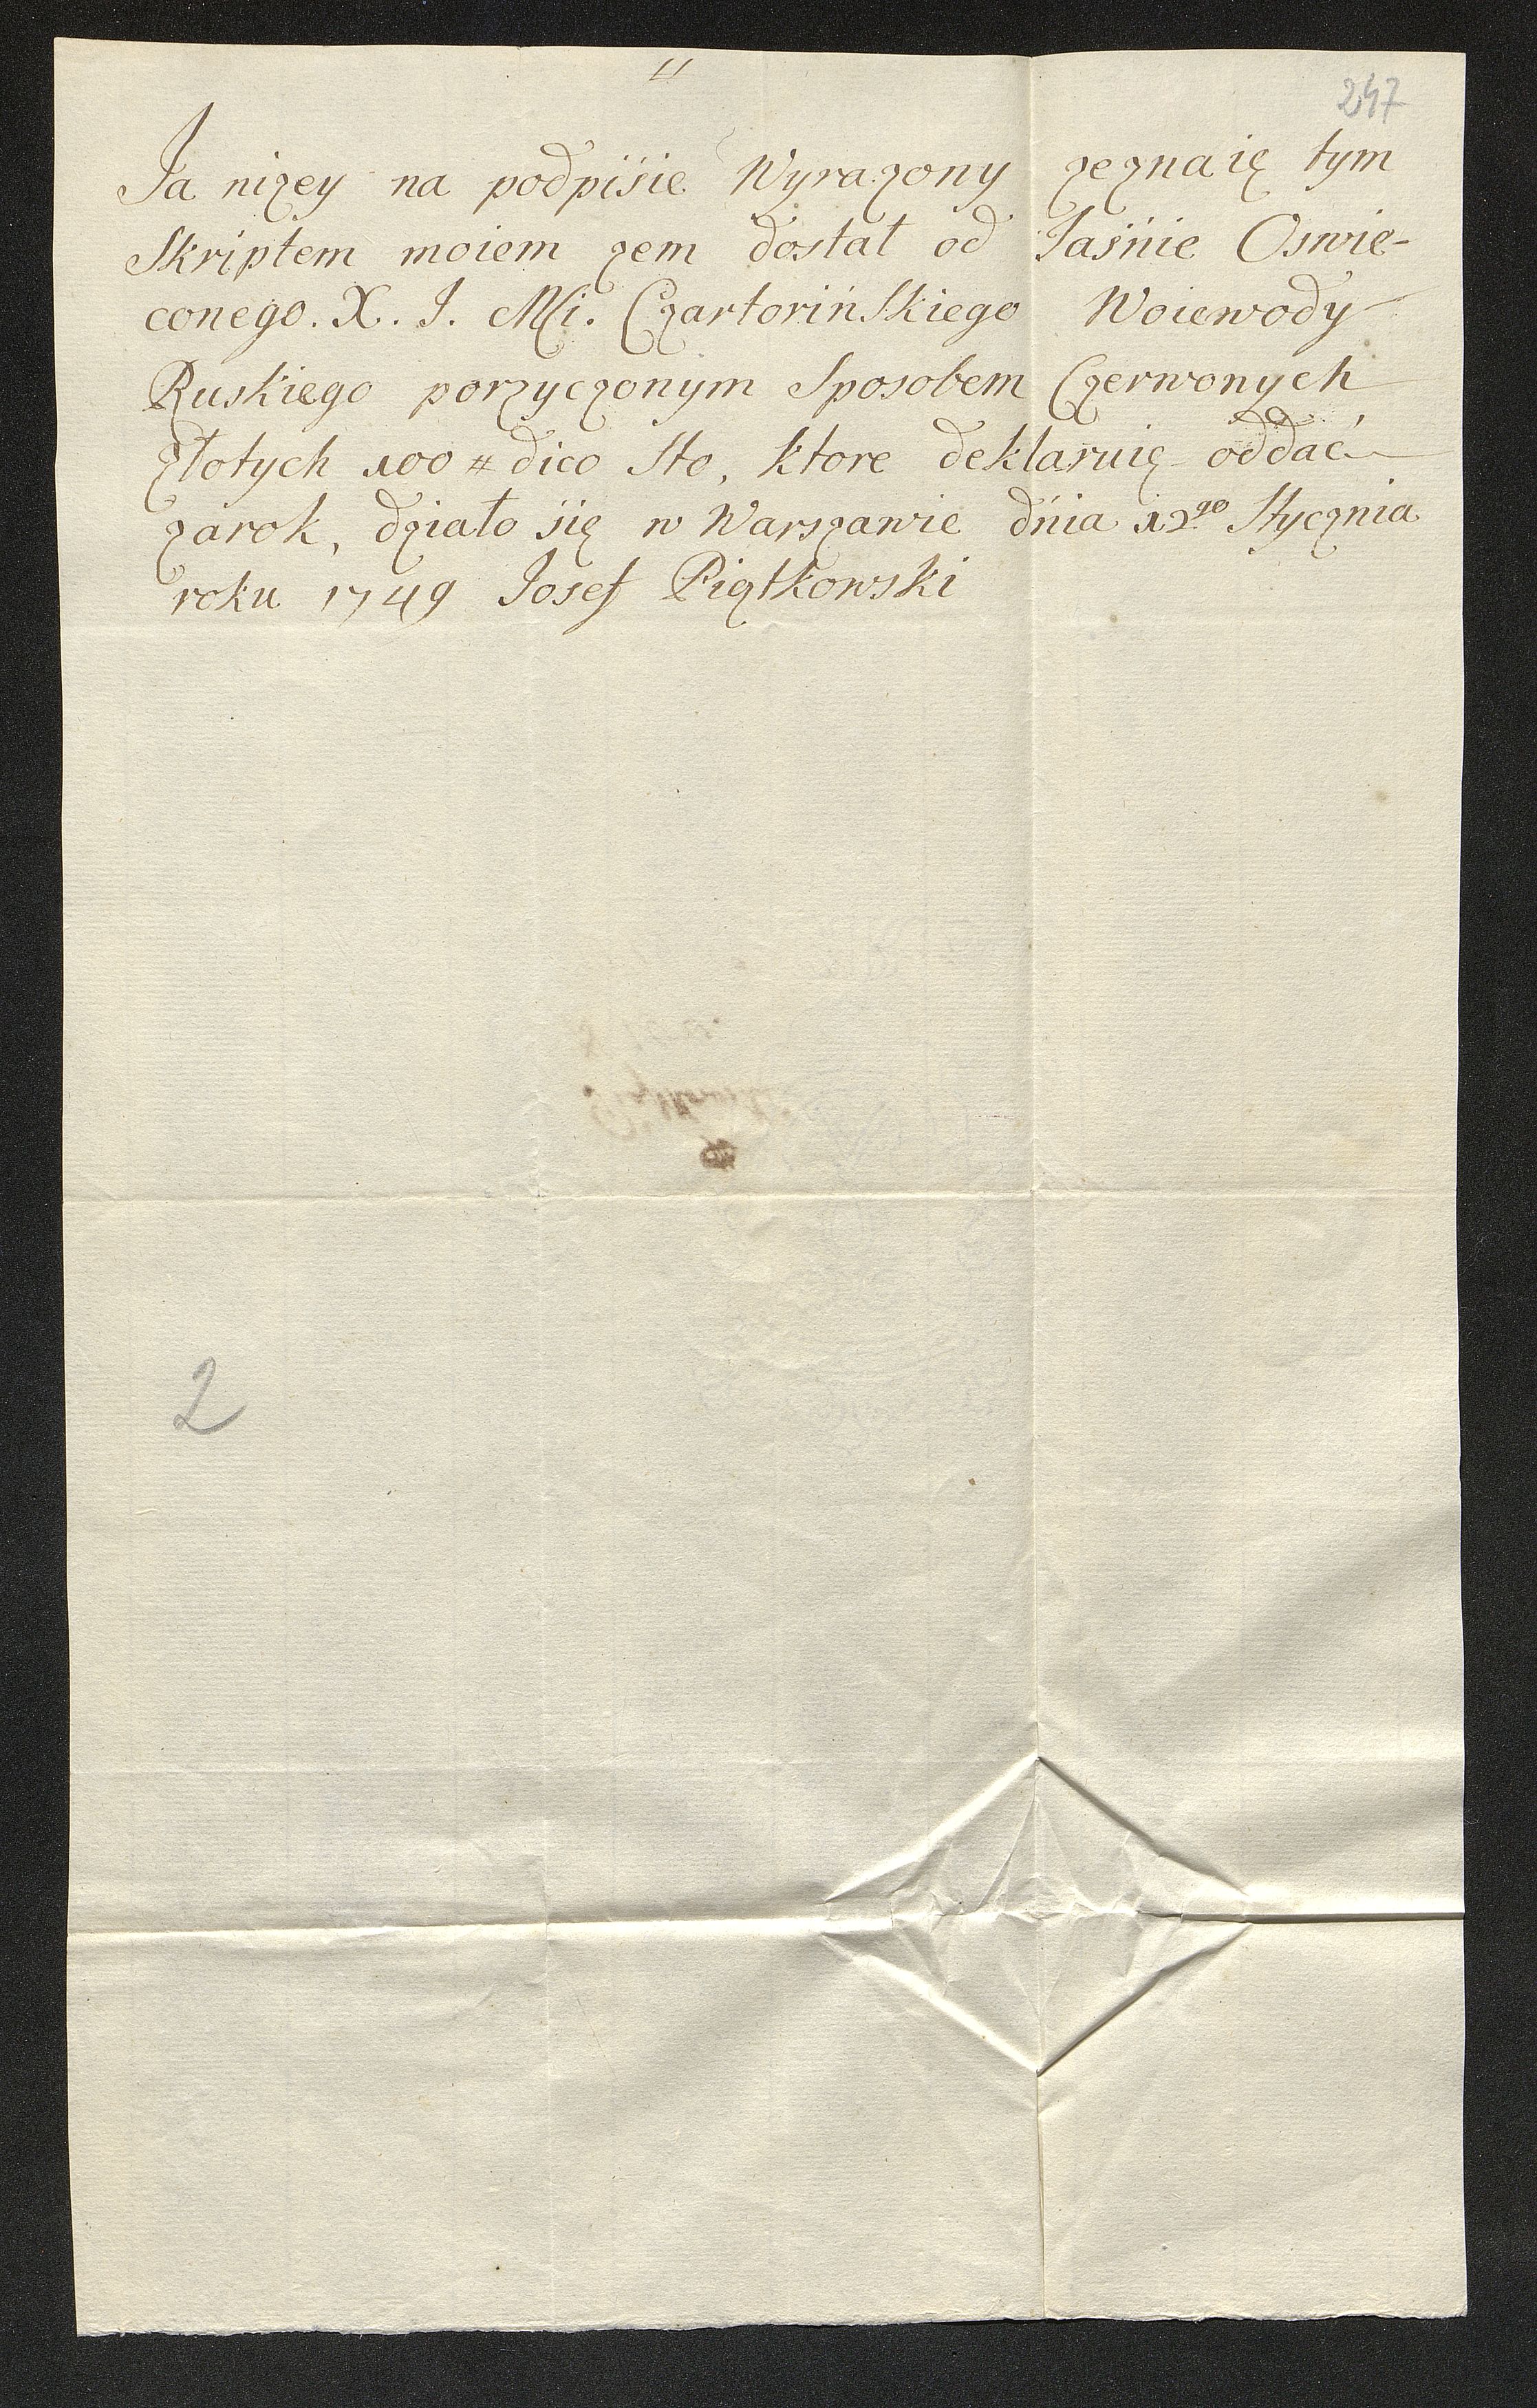 247
Ja nizey na podpisie Wyrazony zeznaię tym
Skriptem moiem zem dostał od Jaśnie Oswie-
conego. X. J. Mći. Czartorińskiego Woiewody
Ruskiego porzyczonym Sposobem Czerwonych
złotych 100 # dico Sto, ktore deklaruię oddać
zarok, działo się w Warszawie dnia 12go Stycznia
roku 1749 Josef Piątkowski
2